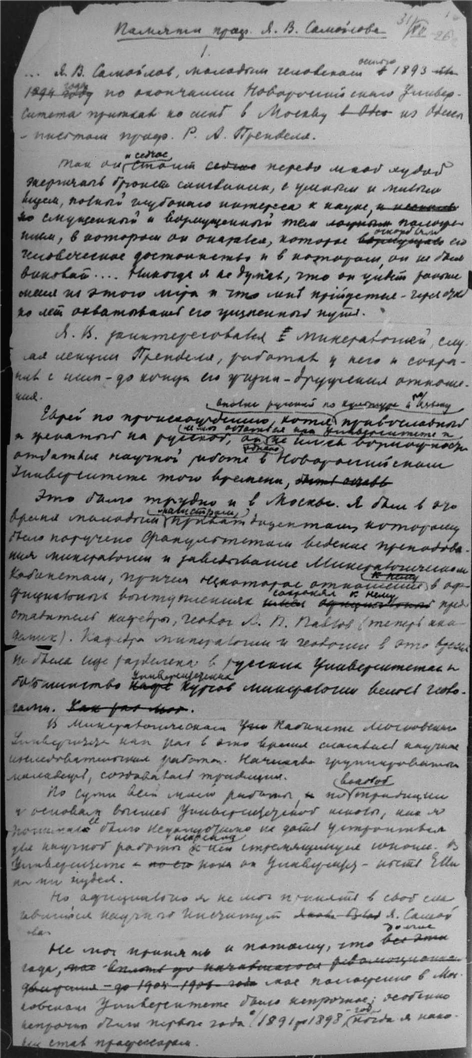 31/VII 26
Памяти проф. Я. В. Самойлова
I.
... Я. В. Самойлов, молодым человеком осенью 1893
1894 года по окончании Новороссийского Универ-
ситета приехал ко мне в Москву из Одессы
с письмом проф. Р. А. Пренделя.
Как сейчас стоит сейчас передо мной худой
жгучий брюнет с умным и живым
лицом, полный глубокого интереса к науке,
но смущенный и возмущенный тем положе-
нием, в котором он оказался, которое оскорбляло его
человеческое достоинство и в котором он не был
виноват.... Никогда я не думал, что он уйдет раньше
меня из этого міра и что мне придется - через
лет охватывать его ушедший путь.
Я. В. заинтересовался минералогией, слу-
шая лекции Пренделя, работал у него и сохра-
нил с ним - до конца его жизни - дружеския отноше-
ния.
вполне русский по культуре и быту
Еврей по происхождению, хотя православный
и женатый на русской, он не имел возможности
отдаться научной работе в Новороссийском
Университете того времени,
Это было трудно и в Москве. Я был в это
время молодым приват-доцентом, которому
было поручено Факультетом ведение преподова-
ния минералогии и заведывание Минералогическим
Кабинетом, причем некоторое отношение к нему в оф-
фициальных выступлениях пред-
ставитель кафедры, геолог А. П. Павлов (теперь ака-
демик). Кафедра минералогии и геологии в это время
не была еще разделена в русских Университетах и
большинство курсов минералогии велось геоло-
гами. Как раз мой.
В Минералогическом Кабинете Московского
Университета как раз в это время слагалась научная
исследовательская работа. Начинала группироваться
молодежь, создавалась традиция.
По сути всей моей работы и по традиции
и основам высшей Университетской школы, как я
понимаю, было недопустимо не дать устроиться
для научной работы к ней стремящемуся юноше. В
Университете пока он Университет - несть Елли-
на ни иудея.
Но официально я не мог принять в свой сла-
гавшийся научный Институт Я. Самой-
лова.
Не мог принять и потому, что долгие
года, все вплоть до начавшегося революционного
движения - до 1905-1906 года мое положение в Мос-
ковском Университете было непрочное; особенно
непрочны были первые года (1891 до 1898), когда я нако-
нец стал профессором.